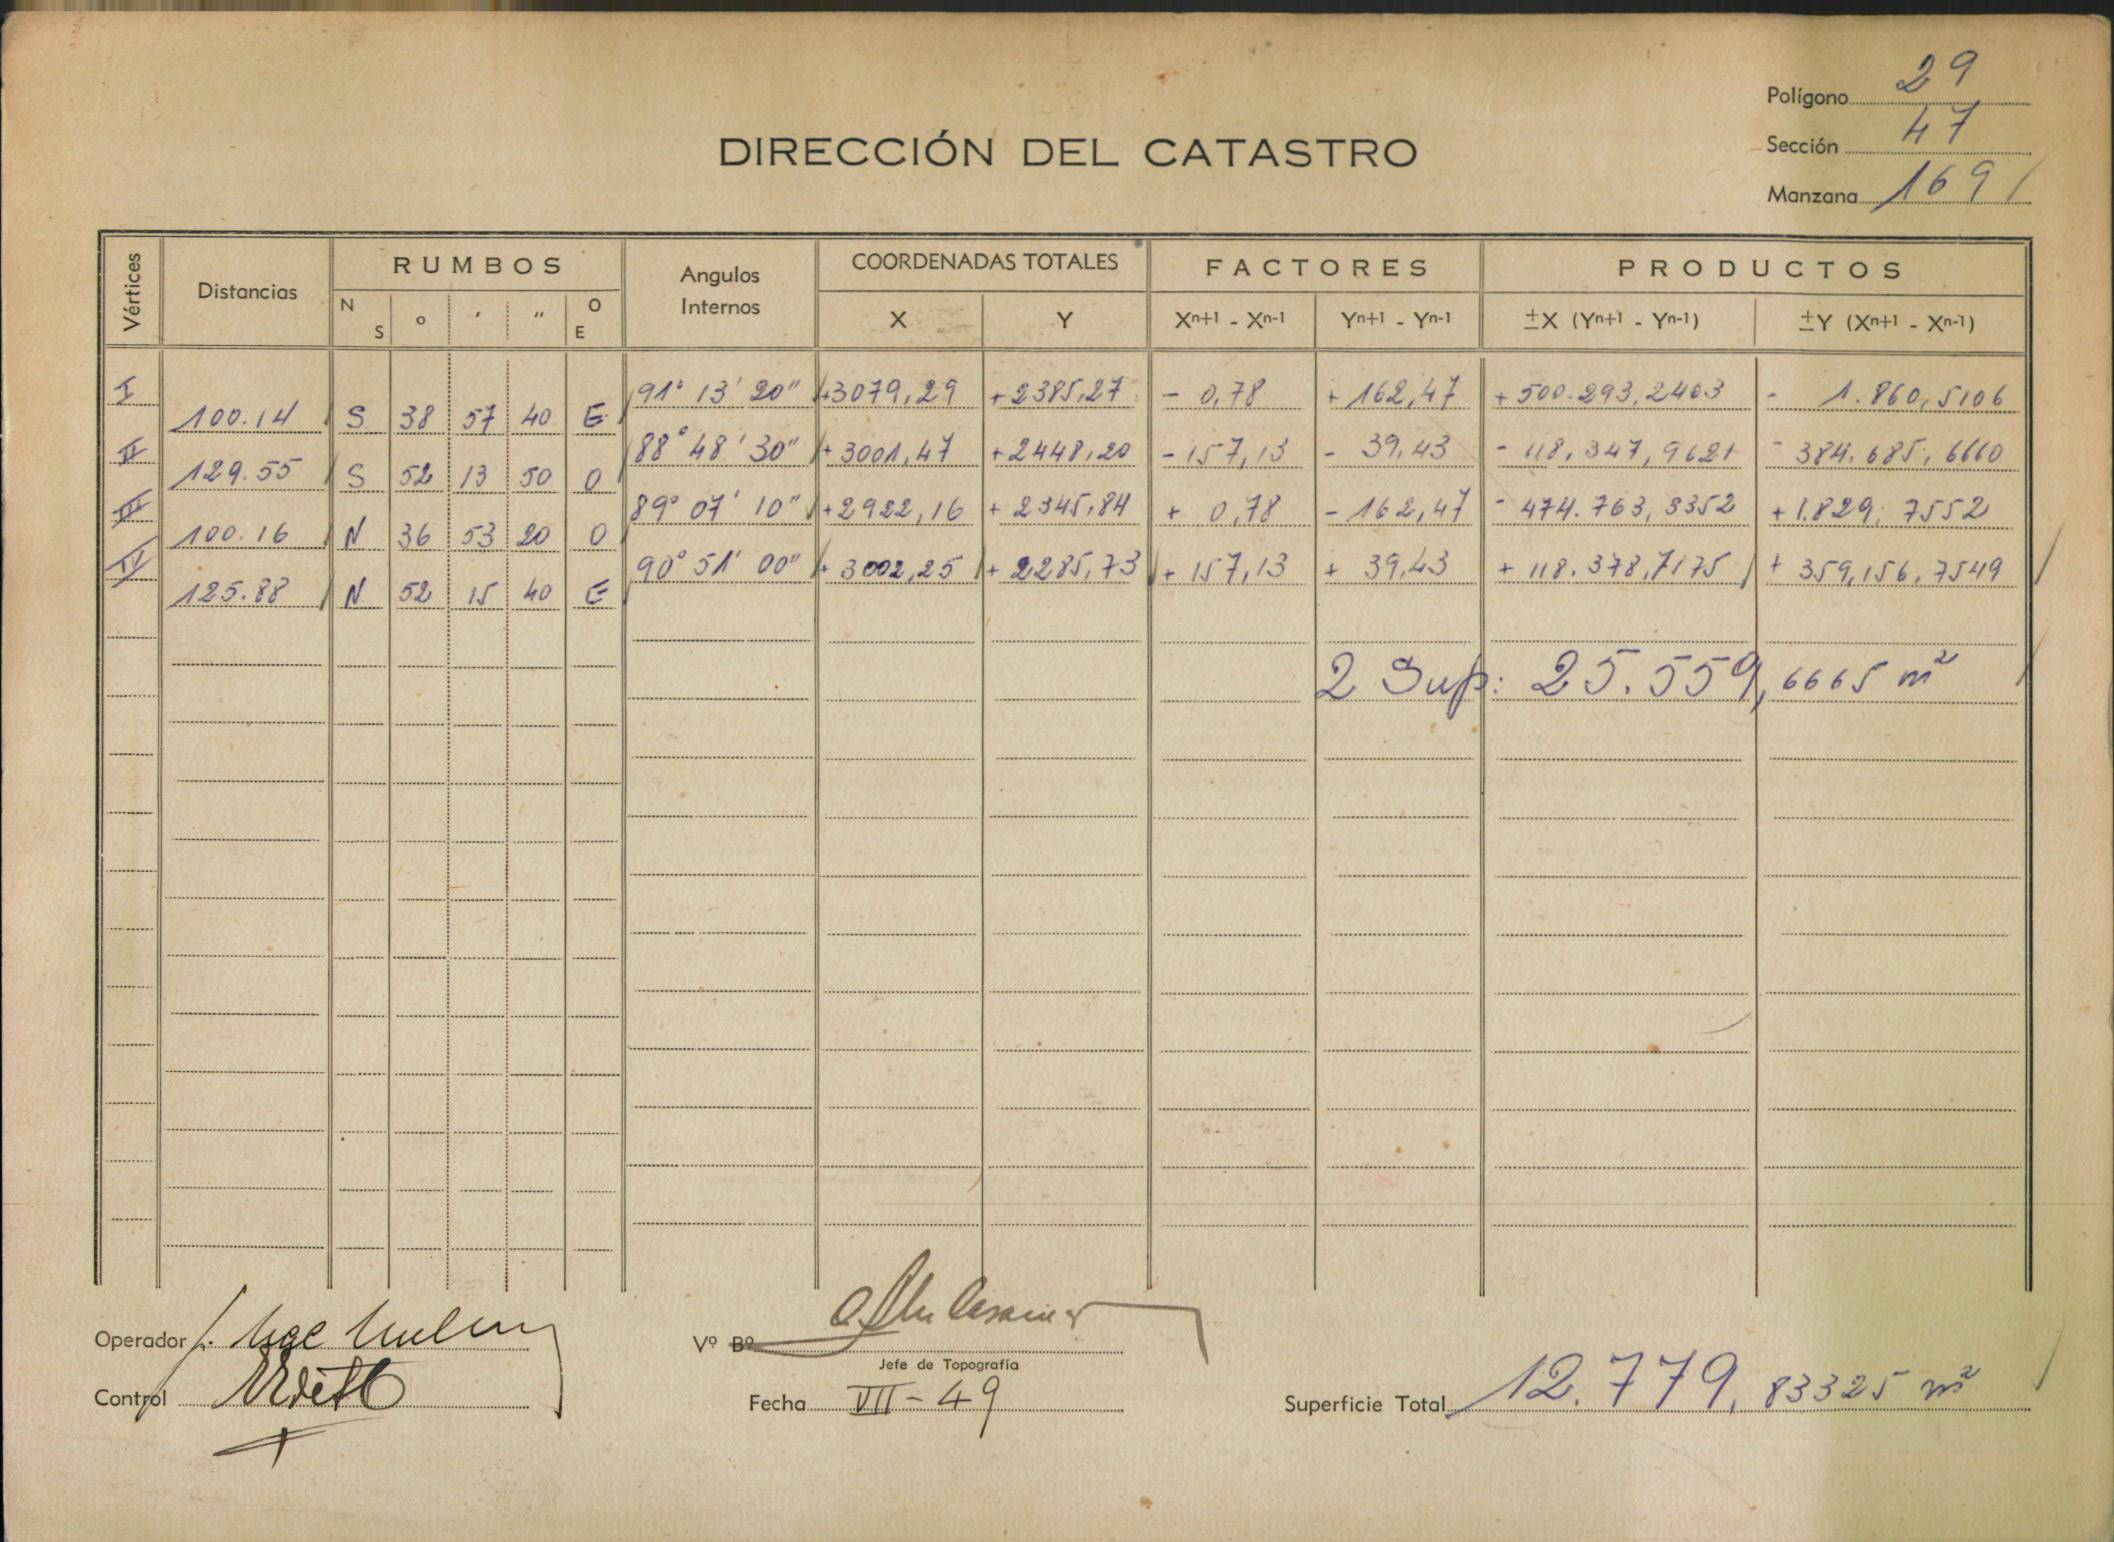 Polígono 29
Sección 47
Manzana 169
DIRECCIÓN DEL CATASTRO
Vértices Distancias RUMBOS Angulos Internos COORDENADAS TOTALES FACTORES PRODUCTOS
N S ° ' " O E X Y Xn+1 - Xn-1 Yn+1 - Yn-1 ±X (Yn+1 - Yn-1) ±Y (Xn+1 - Xn-1)
I 91° 13' 20" +3079,29 +2385,27 - 0,78 + 162,47 +500.293,2463 - 1.860,5106
100.14 S 38 57 40 E
II 88° 48' 30" +3001,47 +2448,20 -157,13 - 39,43 - 118.347,9621 - 384.685,6660
129.55 S 52 13 50 O
III 89° 07' 10" +2922,16 +2345,84 + 0,78 -162,47 - 474.763,3352 +1.829,7552
100.16 N 36 53 20 O
IV 90° 51' 00" + 3002,25 + 2285,73 + 157,13 + 39,43 + 118.378,7175 + 359,156,7549
125.88 N 52 15 40 E
2 Sup: 25.559,6665 m²
Operador
Vº Bº
Jefe de Topografía
Control
Fecha VII-49
Superficie Total 12.779,83325 m²